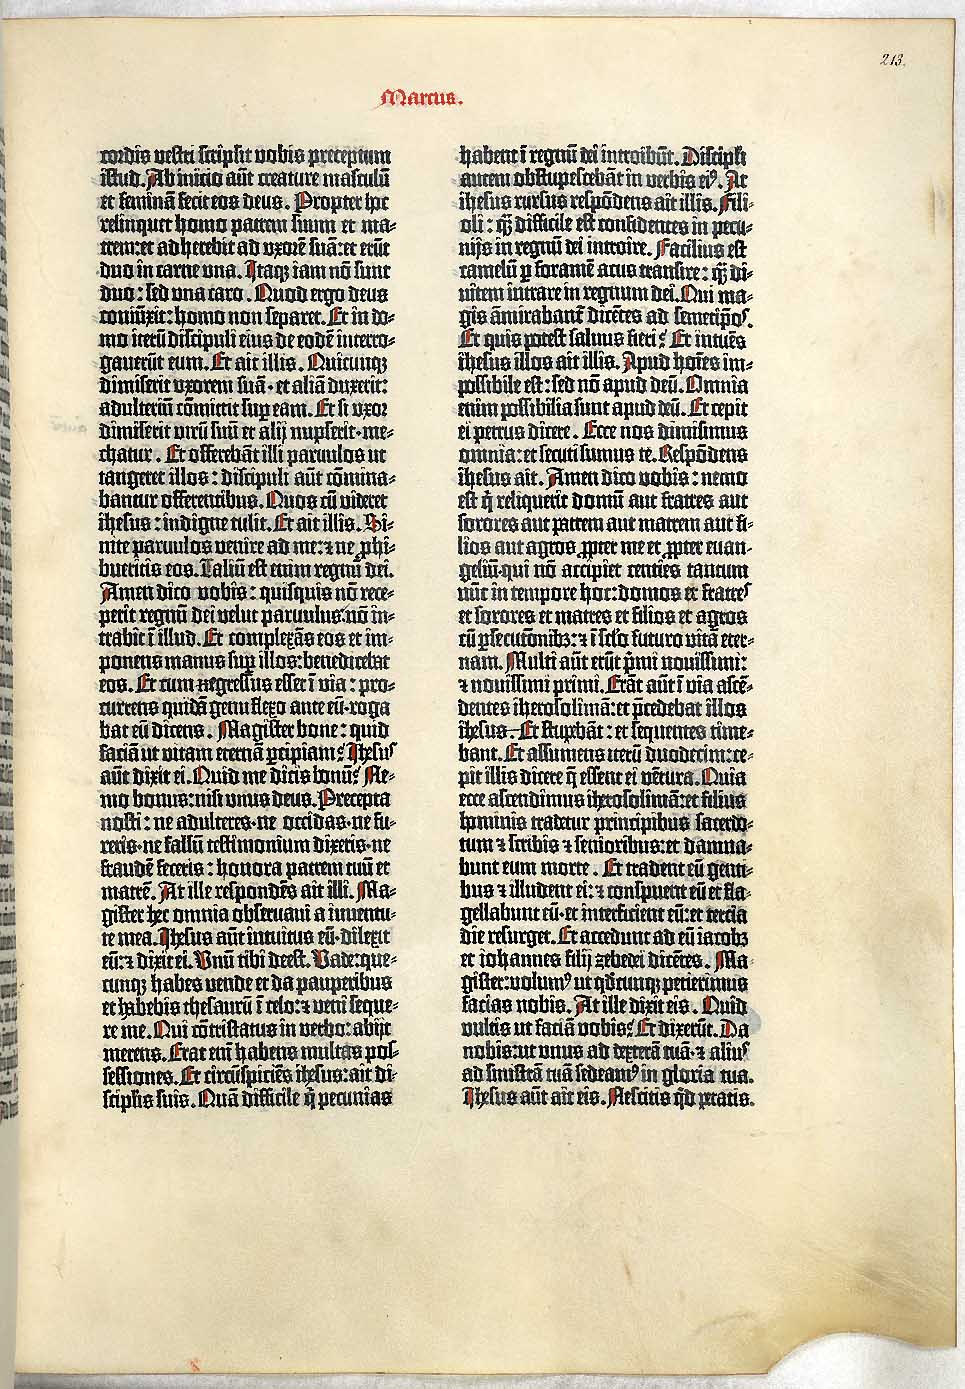 213.
Marcus.
cordis vestri scripsit vobis preceptum
istud. Ab inicio aūt creature masculū
et feminā fecit eos deus. Propter hoc
relinquet homo patrem suum et ma-
trem: et adherebit ad vxorē suā: et erūt
duo in carne vna. Itaqz iam nō sunt
duo: sed vna caro. Quod ergo deus
coniūxit: homo non separet. Et in do-
mo iterū discipuli eius de eodē interro-
gauerūt eum. Et ait illis. Quicunqz
dimiserit vxorem suā · et aliā duxerit:
adulteriū cōmittit sup eam. Et si vxor
dimiserit virū suū et alij nupserit · me-
chatur. Et offerebāt illi paruulos ut
tangeret illos: discipuli aūt cōmina-
bantur offerentibus. Quos cū videret
ihesus: indigne tulit. Et ait illis. Si-
nite paruulos venire ad me: ⁊ ne ꝓhi-
bueritis eos. Taliū est enim regnū dei.
Amen dico vobis: quisquis nō rece-
perit regnū dei velut paruulus: nō in-
trabit ī illud. Et complexās eos et im-
ponens manus sup illos: benedicebat
eos. Et cum egressus esset ī via: pro-
currens quidā genu flexo ante eū · roga
bat eū dicens. Magister bone: quid
faciā ut vitam eternā ꝑcipiam? Ihesus
aūt dixit ei. Quid me dicis bonū? Ne-
mo bonus: nisi vnus deus. Precepta
nosti: ne adulteres · ne occidas · ne fu-
reris · ne falsū testimonium dixeris · ne
fraudē feceris: honora patrem tuū et
matrē. At ille respondēs ait illi. Ma-
gister hec omnia obseruaui a iuuentu-
te mea. Ihesus aūt intuitus eū · dilexit
eū: ⁊ dixit ei. Vnū tibi deest. Vade: que-
cunqz habes vende et da pauperibus
et habebis thesaurū ī celo: ⁊ veni seque-
re me. Qui cōtristatus in verbo: abijt
merens. Erat enī habens multas pos-
sessiones. Et circūspiciēs ihesus: ait di-
scipulis suis. Quā difficile q̄ pecunias
habent ī regnū dei introibūt. Discipli
autem obstupescebāt in verbis eiꝰ. At
ihesus rursus respōdens ait illis. Fili-
oli: q̄ difficile est confidentes in pecu-
nijs in regnū dei introire. Facilius est
camelū ꝑ foramē acus transire: q̄ di-
uitem intrare in regnum dei. Qui ma-
gis āmirabant dicētes ad semetip̄os.
Et quis potest saluus fieri? Et intuēs
ihesus illos ait illis. Apud hoīes im-
possibile est: sed nō apud deū. Omnia
enim possibilia sunt apud deū. Et cepit
ei petrus dicere. Ecce nos dimisimus
omnia: et secuti sumus te. Respōdens
ihesus ait. Amen dico vobis: nemo
est q̄ reliquerit domū aut fratres aut
sorores aut patrem aut matrem aut fi-
lios aut agros ꝓpter me et ꝓpter euan-
geliū · qui nō accipiet centies tantum
nūc in tempore hoc: domos et fratres
et sorores et matres et filios et agros
cū ꝑsecutōnibz: ⁊ ī sclo futuro vitā eter-
nam. Multi aūt erūt p̄mi nouissimi:
⁊ nouissimi primi. Erāt aūt ī via ascē-
dentes iherosolimā: et p̄cedebat illos
ihesus. Et stupebāt: et sequentes time-
bant. Et assumens iterū duodecim: ce-
pit illis dicere q̄ essent ei vētura. Quia
ecce ascendimus iherosolimā: et filius
hominis tradetur principibus sacerdo-
tum ⁊ scribis ⁊ senioribus: et damna-
bunt eum morte. Et tradent eū genti-
bus ⁊ illudent ei: ⁊ conspuent eū et fla-
gellabunt eū · et interficient eū: et tercia
die resurget. Et accedunt ad eū iacobz
et iohannes filij zebedei dicētes. Ma-
gister: volumꝰ ut qdcunqz petierimus
facias nobis. At ille dixit eis. Quid
vultis ut faciā vobis? Et dixerūt. Da
nobis: ut vnus ad dexterā tuā · ⁊ aliuꝰ
ad sinistrā tuā sedeamꝰ in gloria tua.
Ihesus aūt ait eis. Nescitis qd petatis.